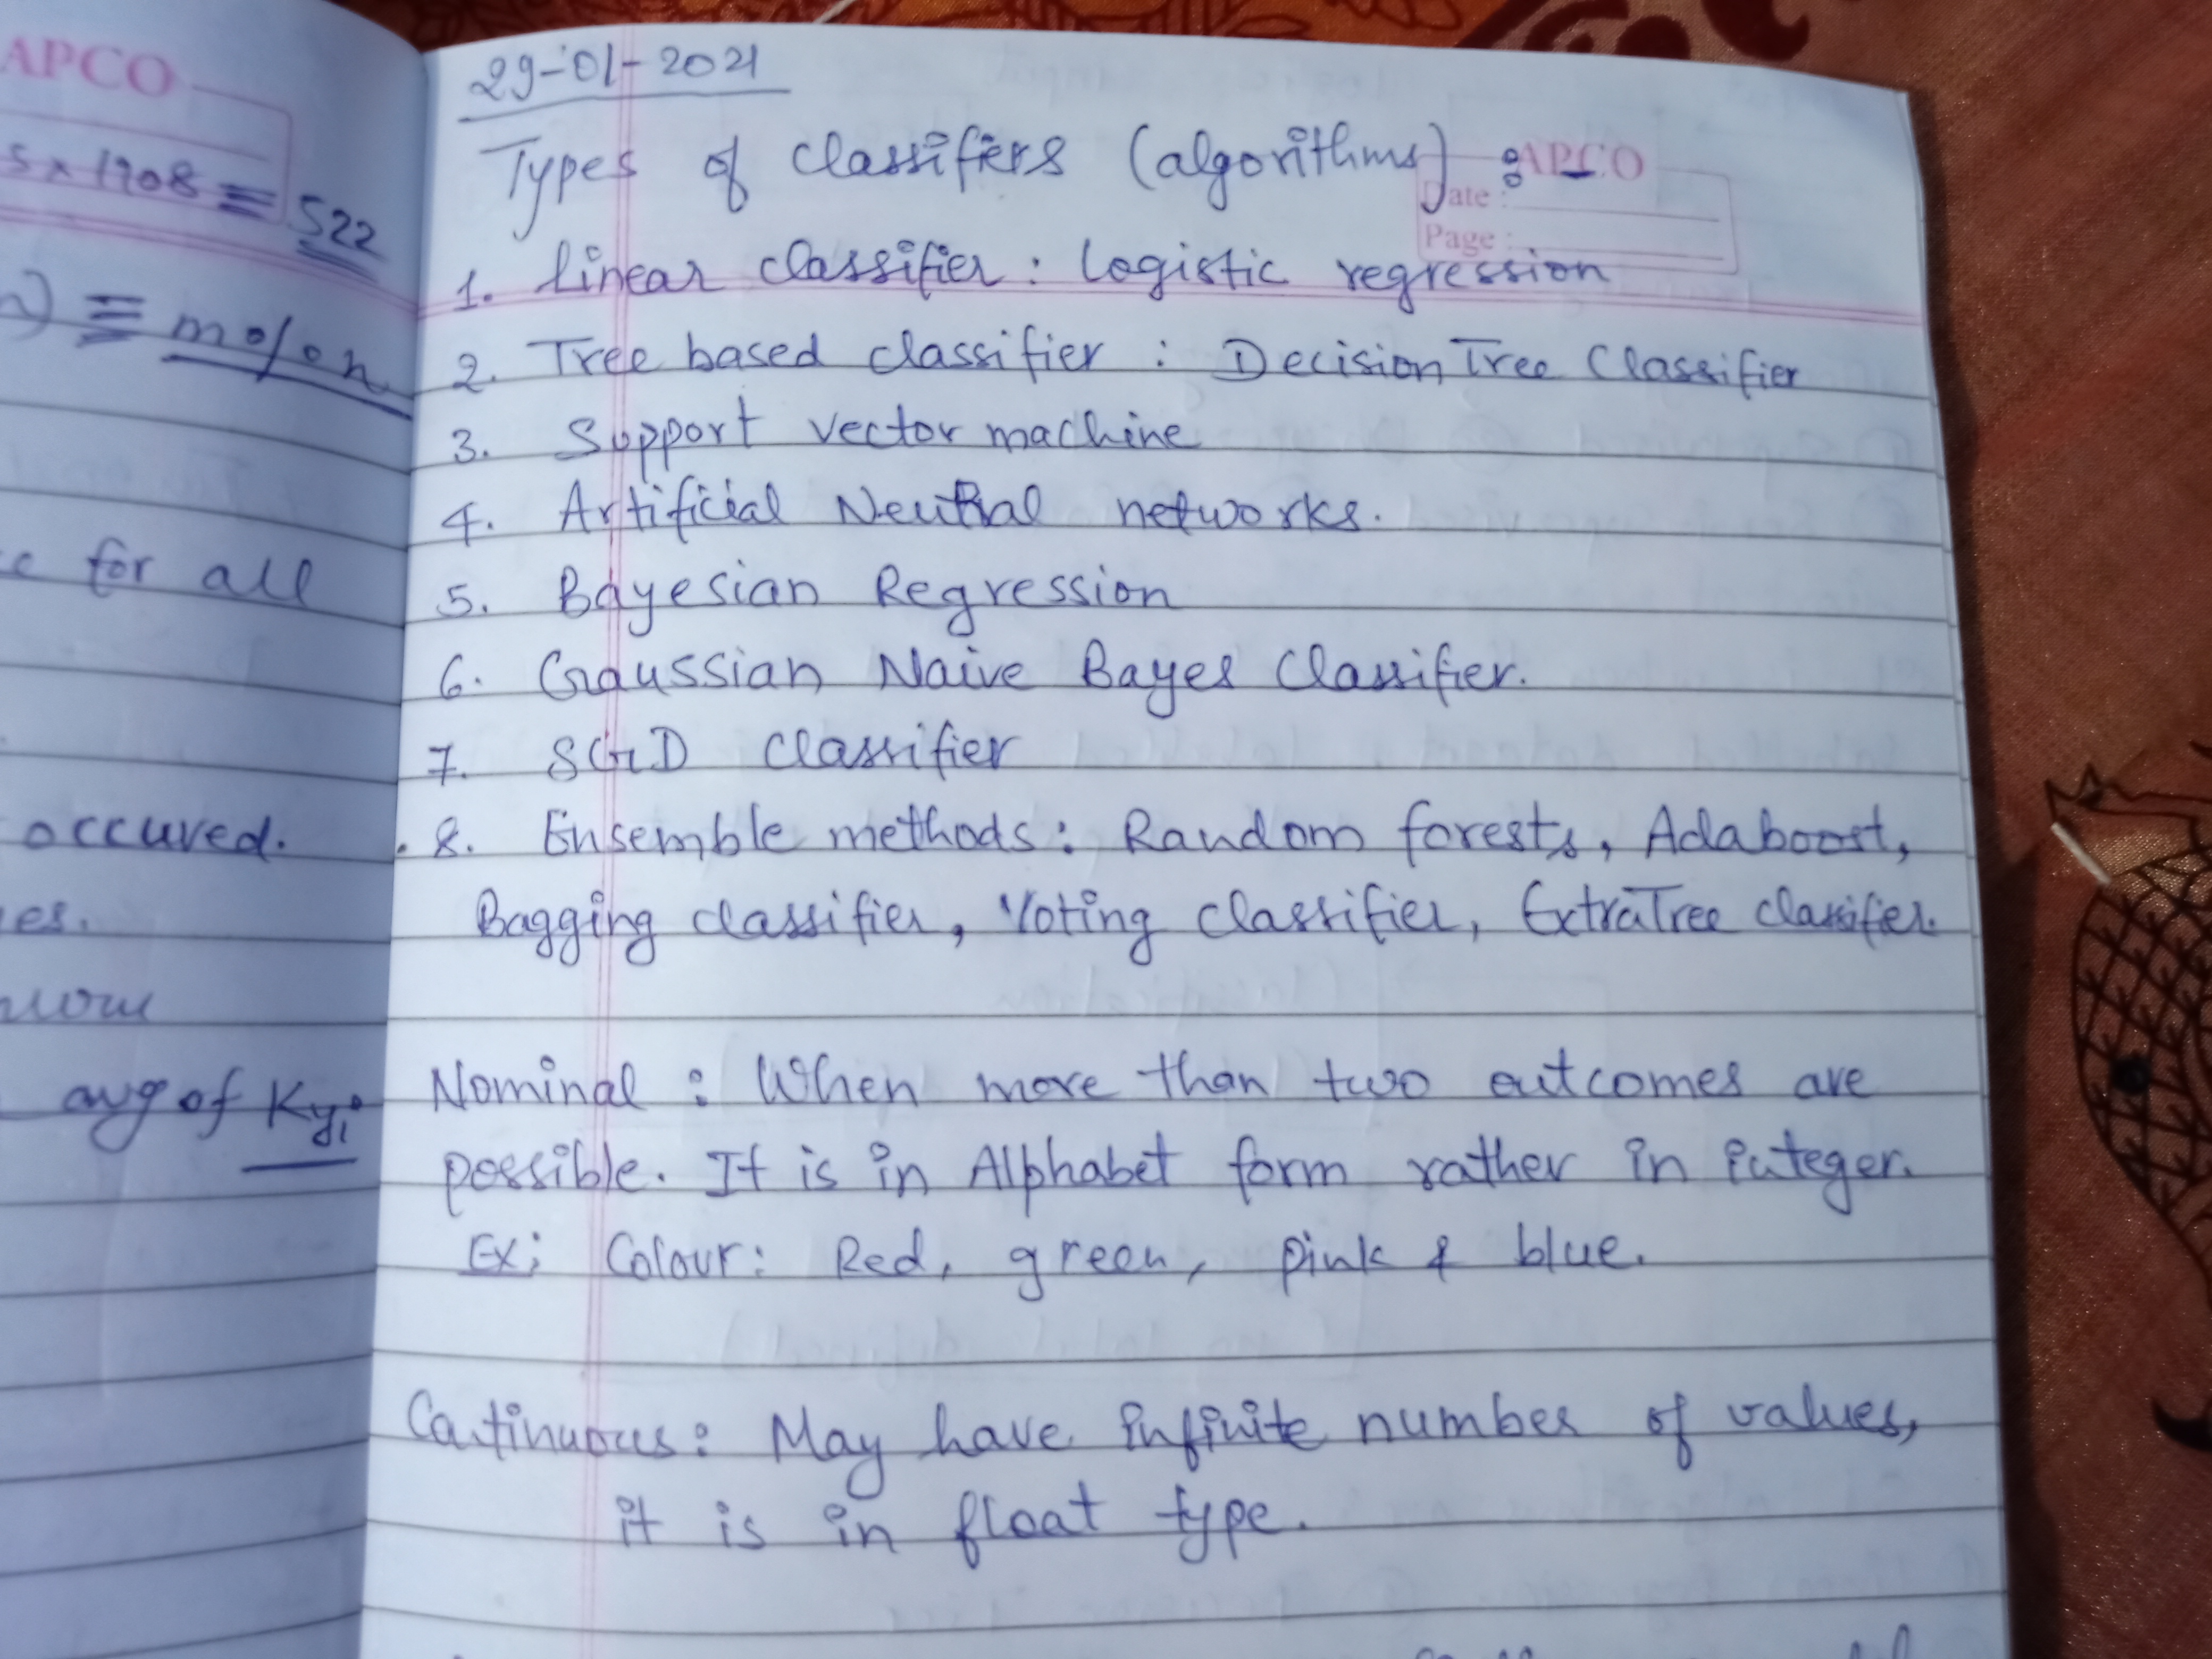 APCO
5 x 1908 = 522
≡ mo/on
for all
occured.
avg of Kyi
29-01-2021
Types of classifiers (algorithms) :
APCO
Date :
Page :
1. Linear classifier : Logistic regression
2. Tree based classifier : Decision Tree Classifier
3. Support vector machine
4. Artificial Neutral networks.
5. Bayesian Regression
6. Gaussian Naive Bayes Classifier.
7. SGD Classifier
8. Ensemble methods : Random forests, Adaboost,
Bagging classifier, Voting classifier, ExtraTree classifier.
Nominal : When more than two outcomes are
possible. It is in Alphabet form rather in integer.
Ex: Colour: Red, green, pink & blue.
Continuous : May have infinite number of values,
it is in float type.